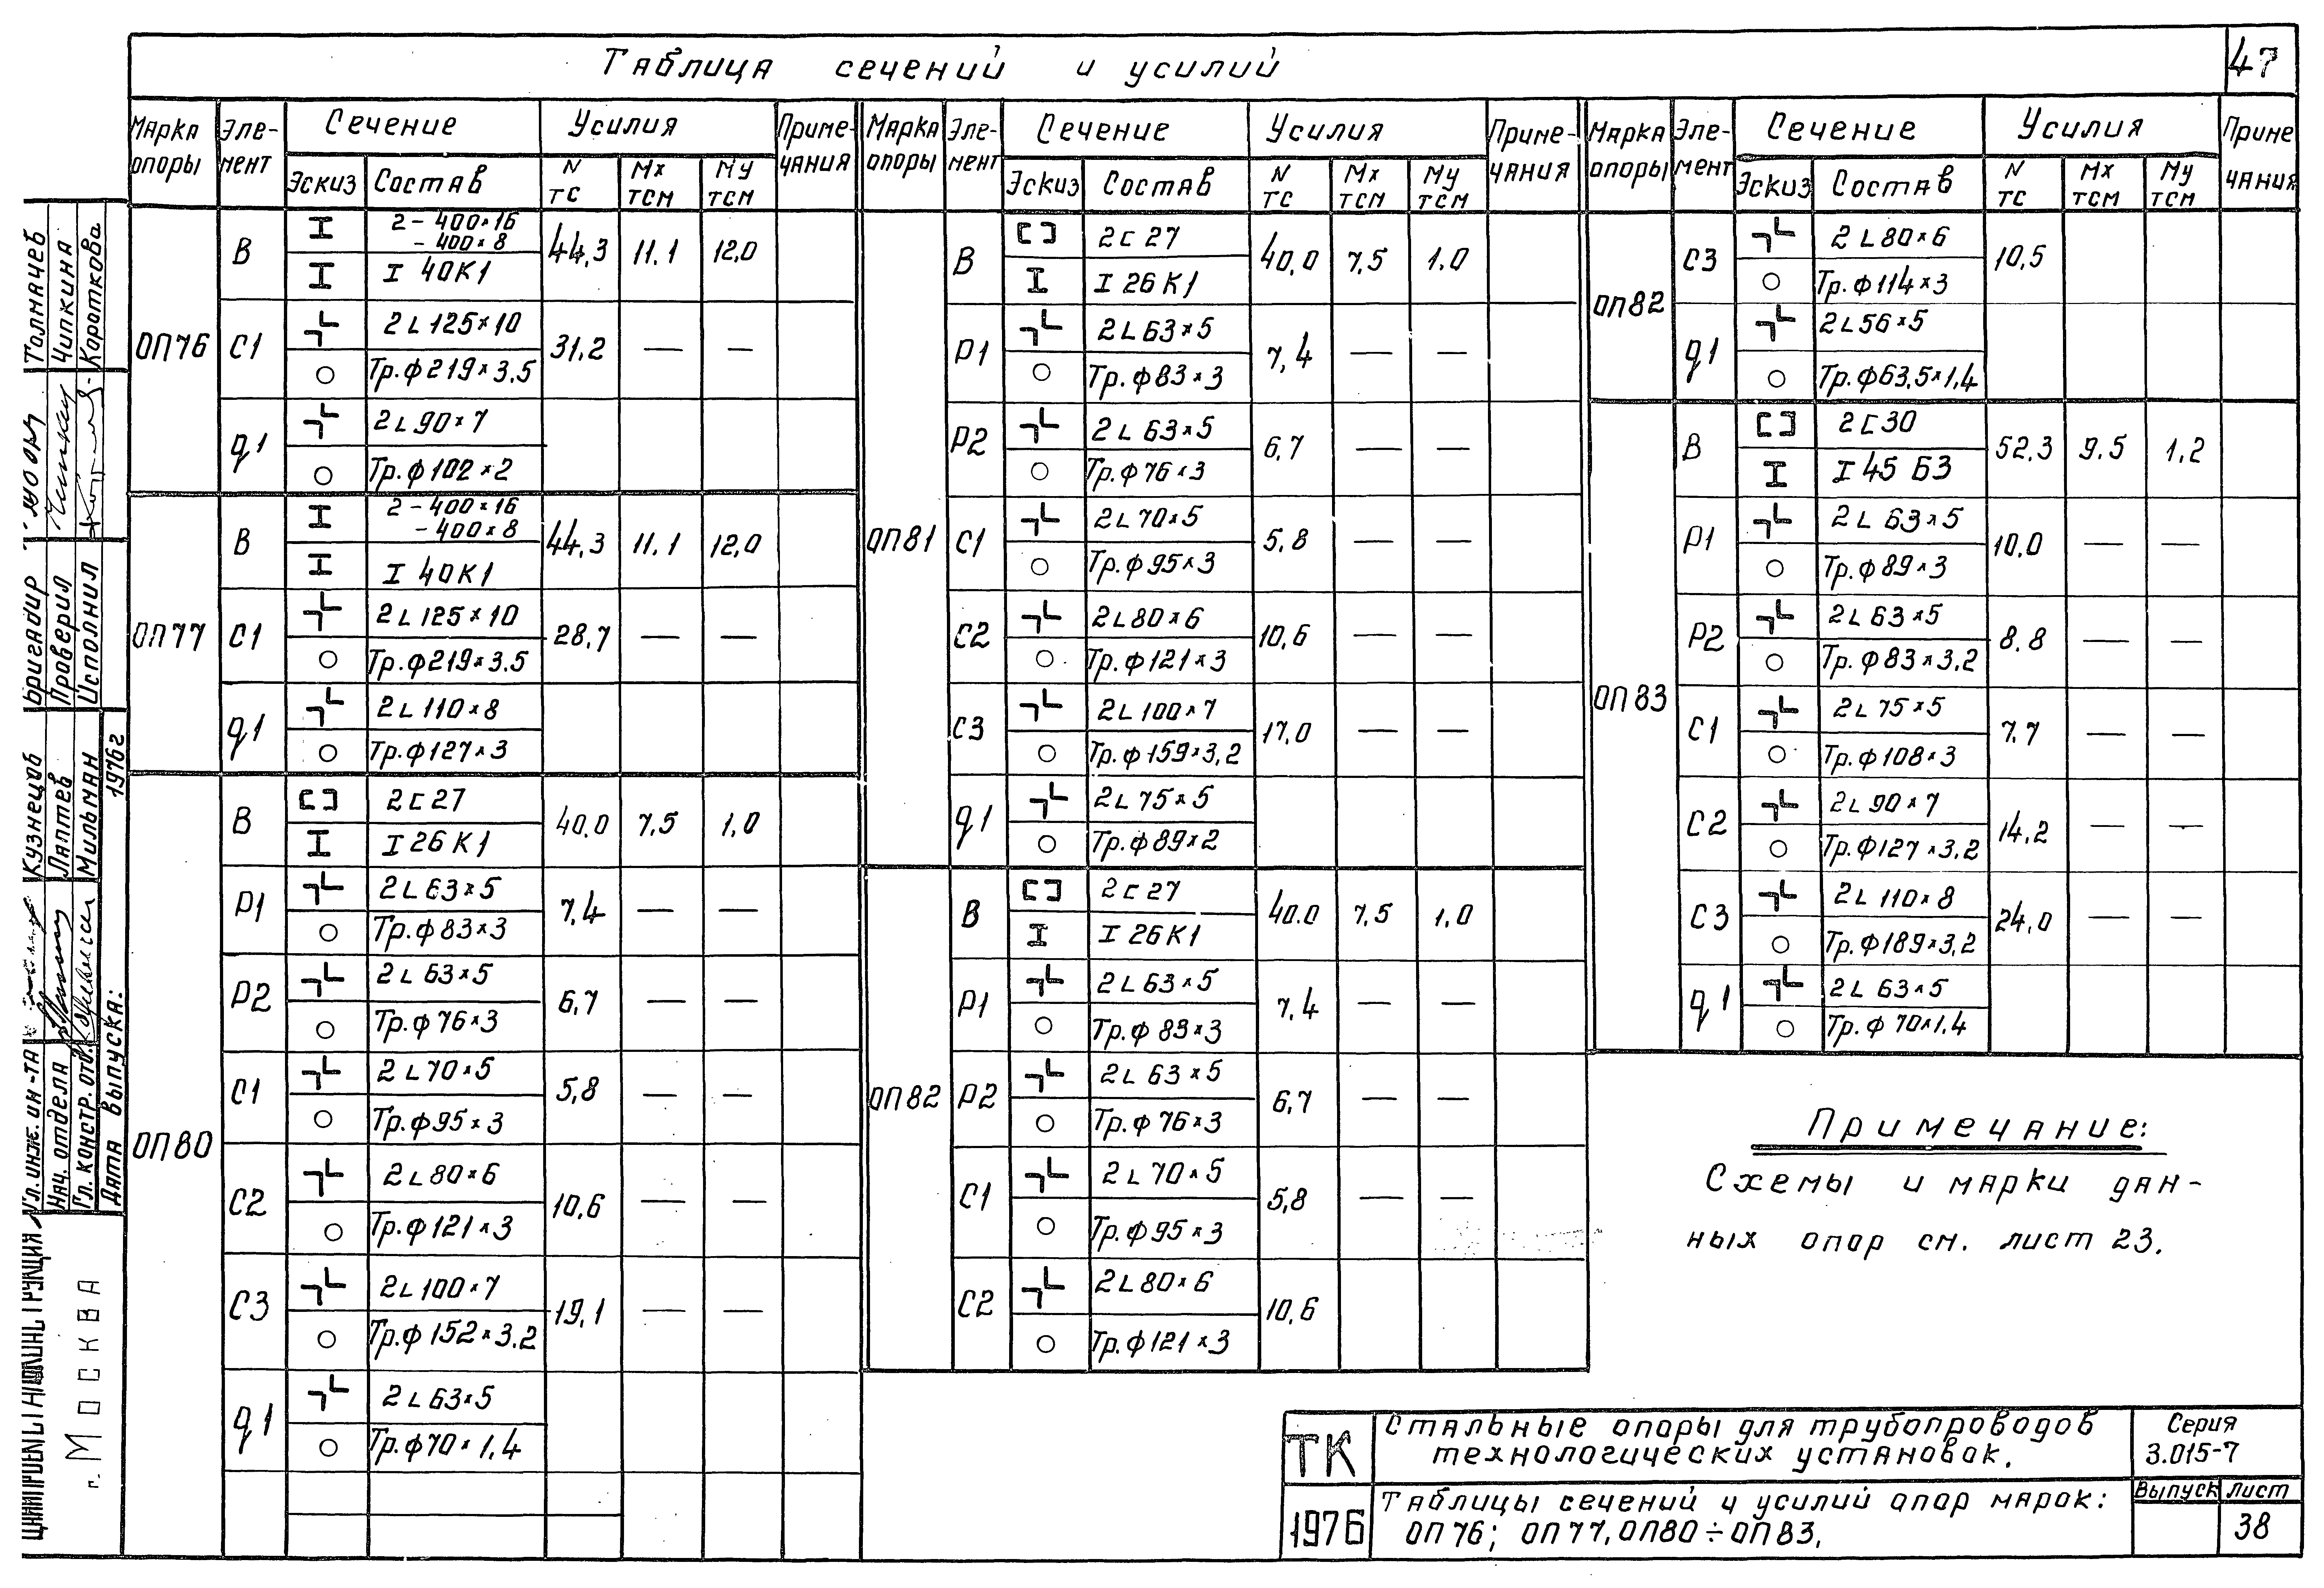 47
Таблица сечений и усилий
Марка опоры
Эле-мент
Сечение
Усилия
Приме-чания
Эскиз
Состав
N тс
Мх тсм
Му тсм
ОП76
В
2 - 400×16
- 400×8
I 40К1
44,3 11,1 12,0
С1
2L125×10
Тр.ф219×3,5
31,2 — —
q1
2L90×7
Тр.ф102×2
ОП77
В
2 - 400×16
- 400×8
I 40К1
44,3 11,1 12,0
С1
2L125×10
Тр.ф219×3,5
28,7 — —
q1
2L110×8
Тр.ф127×3
ОП80
В
2С27
I 26К1
40,0 7,5 1,0
Р1
2L63×5
Тр.ф83×3
7,4 — —
Р2
2L63×5
Тр.ф76×3
6,7 — —
С1
2L70×5
Тр.ф95×3
5,8 — —
С2
2L80×6
Тр.ф121×3
10,6 — —
С3
2L100×7
Тр.ф152×3,2
19,1 — —
q1
2L63×5
Тр.ф70×1,4
Марка опоры
Эле-мент
Сечение
Усилия
Приме-чания
Эскиз
Состав
N тс
Мх тсм
Му тсм
ОП81
В
2С27
I 26К1
40,0 7,5 1,0
Р1
2L63×5
Тр.ф83×3
7,4 — —
Р2
2L63×5
Тр.ф76×3
6,7 — —
С1
2L70×5
Тр.ф95×3
5,8 — —
С2
2L80×6
Тр.ф121×3
10,6 — —
С3
2L100×7
Тр.ф159×3,2
17,0 — —
q1
2L75×5
Тр.ф89×2
ОП82
В
2С27
I 26К1
40.0 7,5 1,0
Р1
2L63×5
Тр.ф83×3
7,4 — —
Р2
2L63×5
Тр.ф76×3
6,7 — —
С1
2L70×5
Тр.ф95×3
5,8 — —
С2
2L80×6
Тр.ф121×3
10,6
Марка опоры
Эле-мент
Сечение
Усилия
Приме чания
Эскиз
Состав
N тс
Мх тсм
Му тсм
ОП82
С3
2L80×6
Тр.ф114×3
10,5
q1
2L56×5
Тр.ф63,5×1,4
ОП83
В
2С30
I 45 Б3
52,3 9,5 1,2
Р1
2L63×5
Тр.ф89×3
10,0 — —
Р2
2L63×5
Тр.ф83×3,2
8,8 — —
С1
2L75×5
Тр.ф108×3
7,7 — —
С2
2L90×7
Тр.ф127×3,2
14,2 — —
С3
2L110×8
Тр.ф189×3,2
24,0 — —
q1
2L63×5
Тр.ф70×1,4
Примечание:
Схемы и марки дан-
ных опор см. лист 23.
ТК
1976
Стальные опоры для трубопроводов
технологических установок.
Серия
3.015-7
Таблицы сечений и усилий опор марок:
ОП76; ОП77, ОП80÷ОП83.
Выпуск
Лист
38
г. Москва
Гл. инж. ин-та
Кузнецов
Бригадир
Толмачев
Нач. отдела
Лаптев
Проверил
Чипкина
Гл. констр. отд.
Мильман
Исполнил
Короткова
Дата выпуска: 1976г